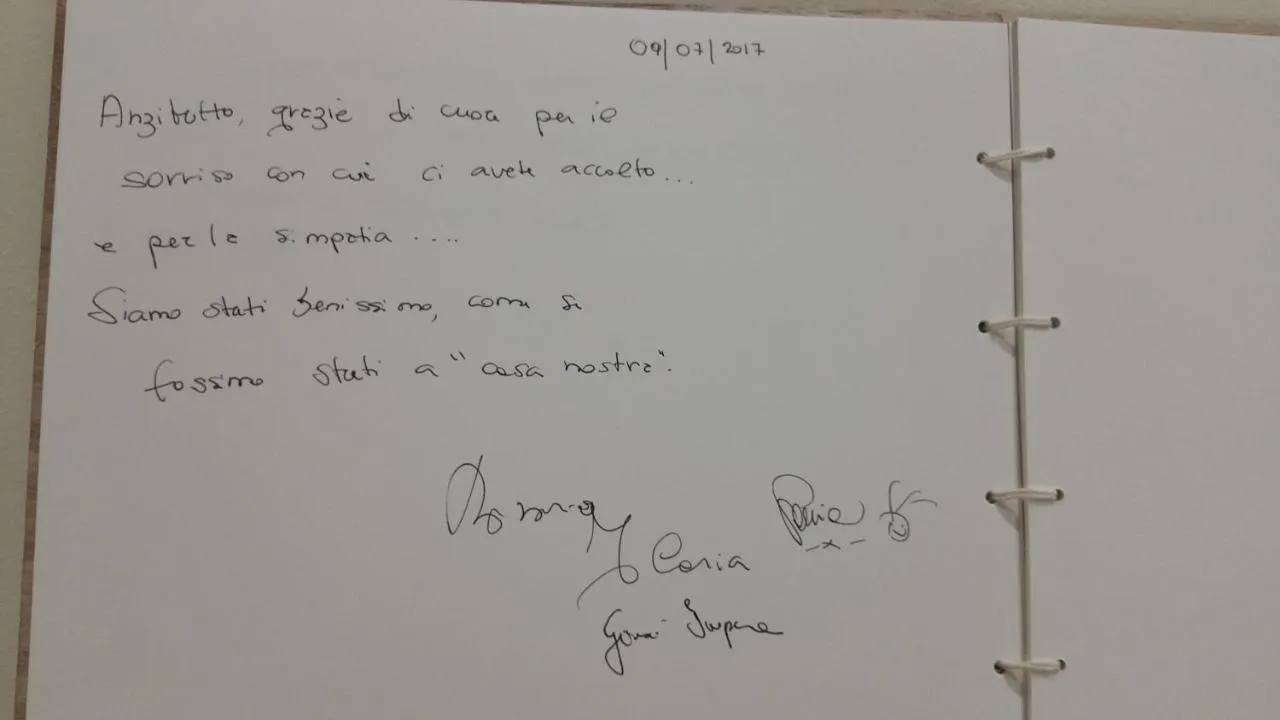 09/07/2017
Anzitutto, grazie di cuore per il
sorriso con cui ci avete accolto...
e per la simpatia ....
Siamo stati benissimo, come se
fossimo stati a "casa nostra".
Ilaria